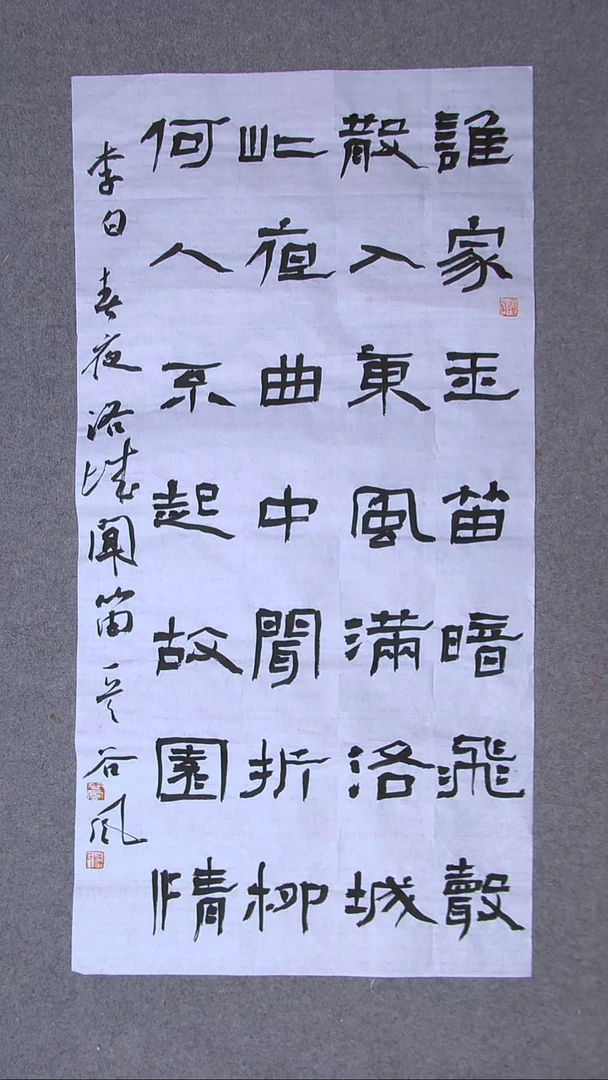 誰家玉笛暗飛聲
散入東風滿洛城
此夜曲中聞折柳
何人不起故園情
李白春夜洛城聞笛 谷風